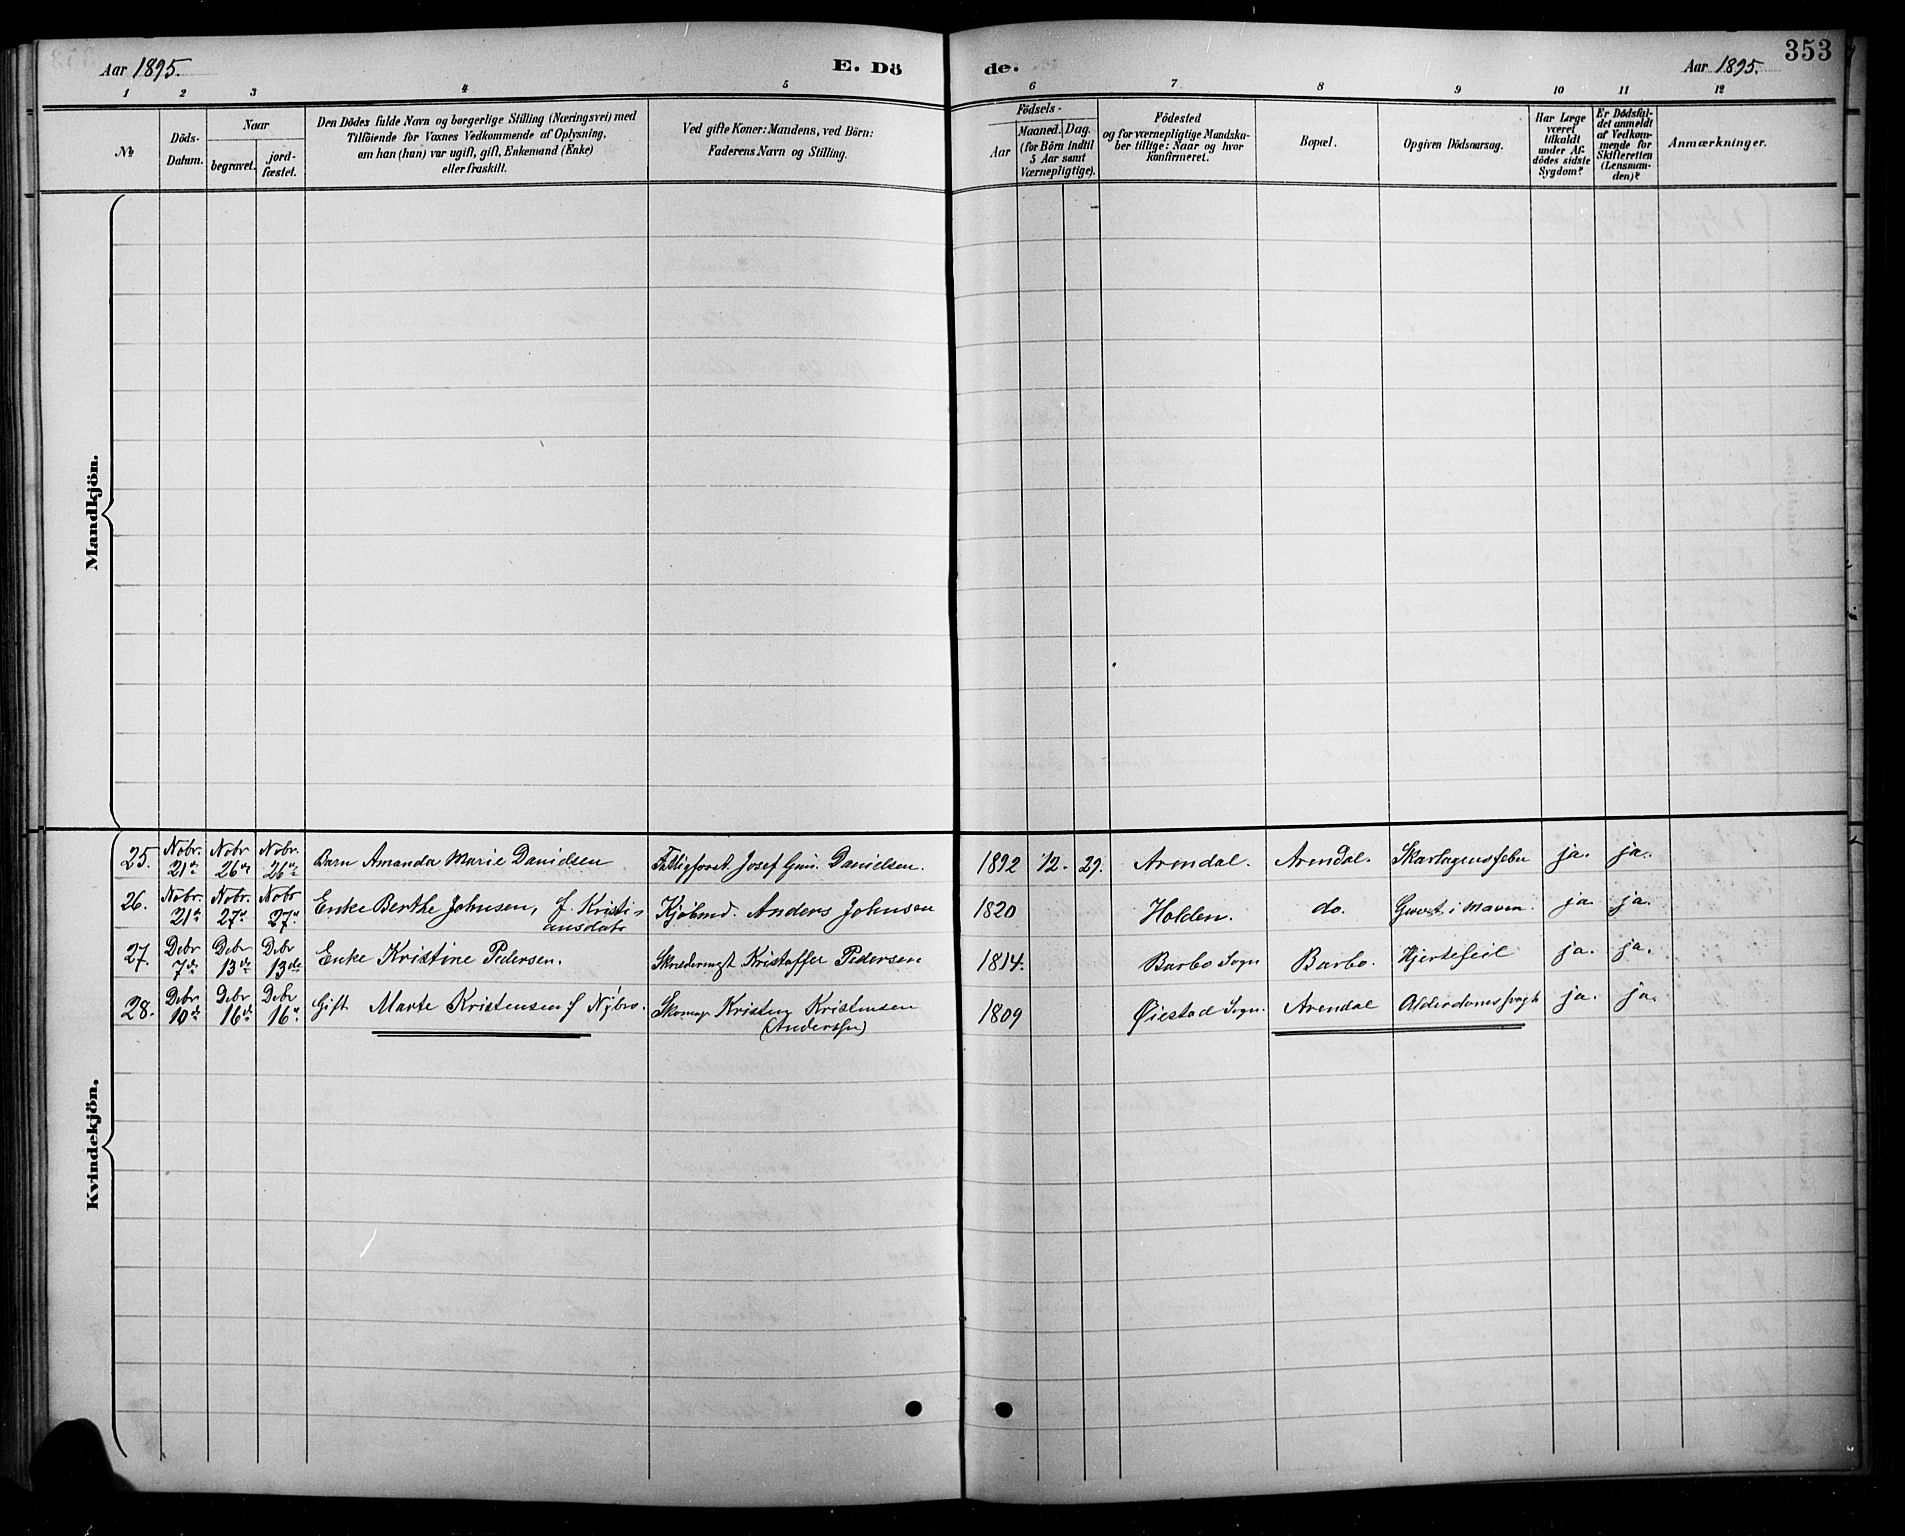 Aar 1895. E. Dö de. Aar 1895. 353
1 2 3 4 5 6 7 8 9 10 11 12
№
Döds-
Datum.
Naar
begravet.
jord-
fæstet.
Den Dödes fulde Navn og borgerlige Stilling (Næringsvei) med
Tilföiende for Voxnes Vedkommende af Oplysning,
om han (hun) var ugift, gift, Enkemand (Enke)
eller fraskilt.
Ved gifte Koner: Mandens, ved Börn:
Faderens Navn og Stilling.
Födsels-
Aar
Maaned. Dag.
(for Börn indtil
5 Aar samt
Værnepligtige).
Födested
og for værnepligtige Mandska-
ber tillige: Naar og hvor
konfirmeret.
Bopæl.
Opgiven Dödsaarsag.
Har Læge
været
tilkaldt
under Af-
dödes sidste
Sygdom?
Er Dödsfal-
det anmeldt
af Vedkom-
mende for
Skifteretten
(Lensman-
den)?
Anmærkninger.
Mandkjön.
Kvindekjön.
25. Nobr. 21de Nobr 26de Nobr. 26de Barn Amanda Marie Danielsen Josef Danielsen. 1892 12. 29. Arendal. Arendal. Skarlagensfeber ja. ja.
26. Nobr. 21de Nobr. 27de Nobr 27de Enke Berthe Johnsen, f. Kristi-
ansdatr Kjöbmd. Anders Johnsen 1820 Holden. do. i Maven. ja. ja.
27. Debr 7de Debr 13de Debr 13de Enke Kristine Pedersen. Kristoffer Pedersen 1814. Barbo Sogn Barbo. Hjertefeil ja. ja.
28. Debr. 10de Debr 16de Debr 16de Gift Marte Kristensen f Nybro. Skomagr Kristen Kristensen
(Andersen) 1809 Øiestad Sogn. Arendal Alderdomssvagh ja. ja.